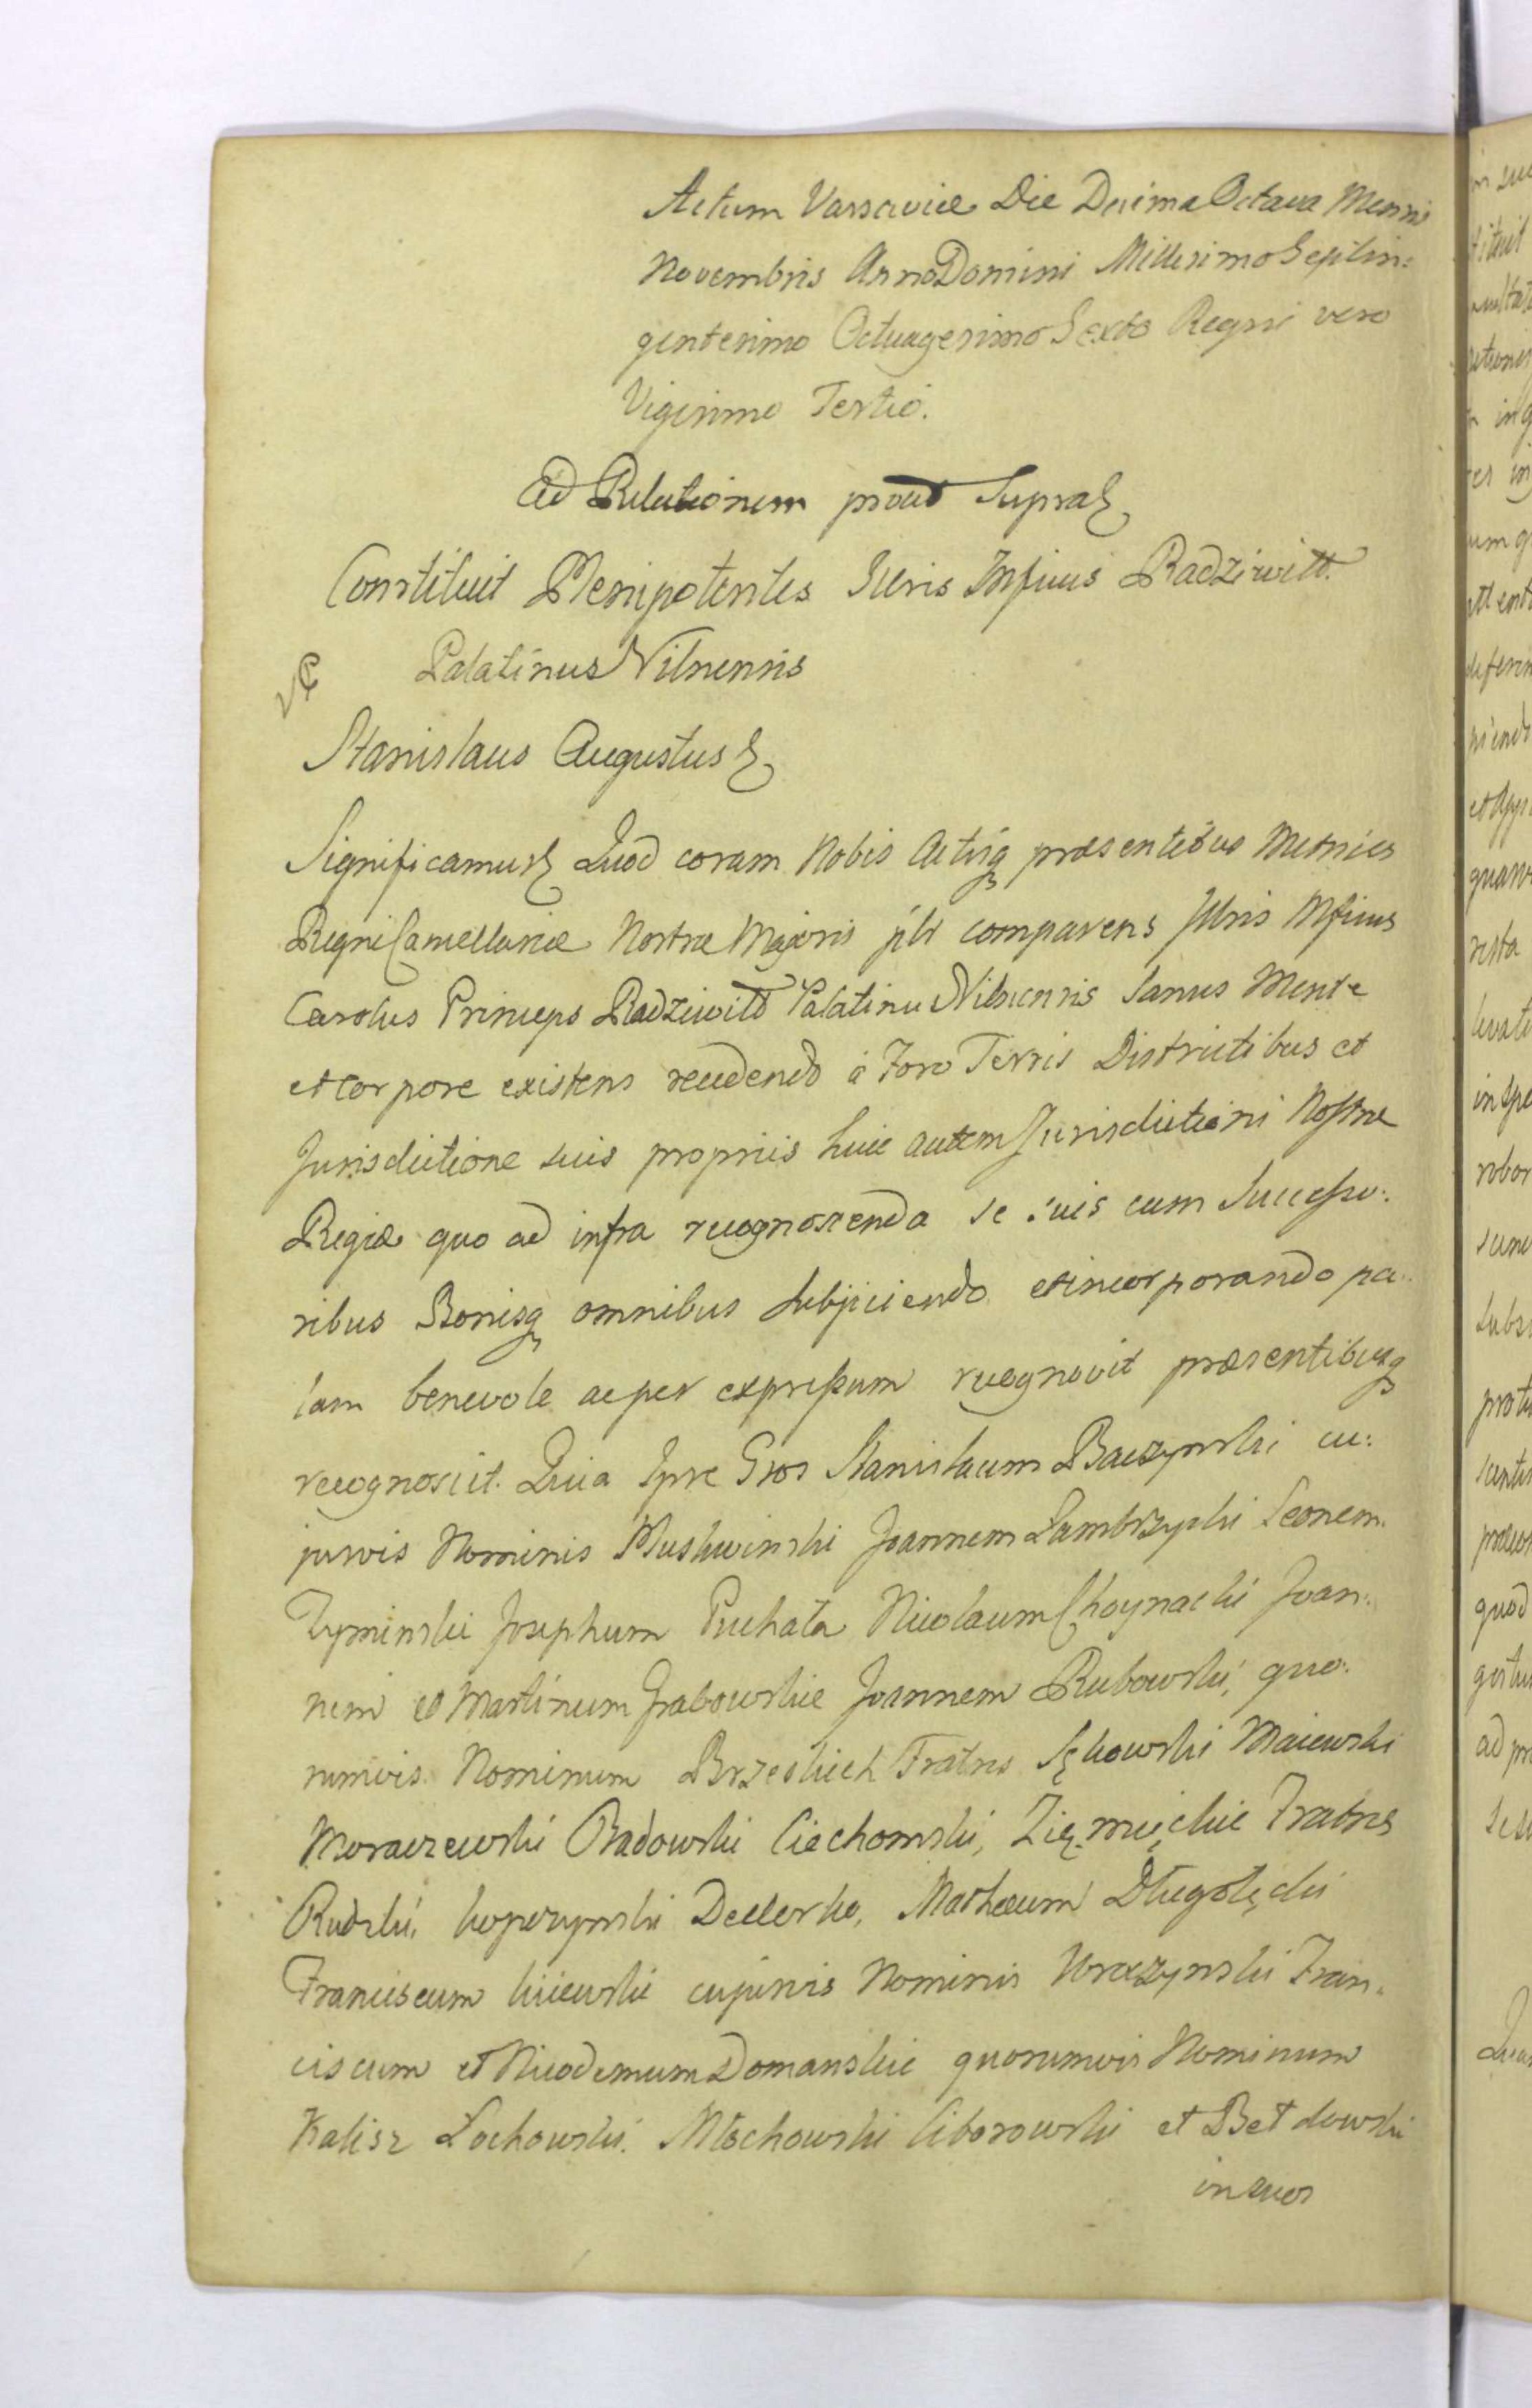 Actum Varsaviæ Die Decima Octava Mensis
Novembris Anno Domini Millesimo Septin:
gentesimo Octuagesimo Sexto Regni vero
Vigesimo Tertio.
Ad Relationem prout Supra
Constituit Plenipotentes Illris Infimus Radziwiłł
Palatinus Vilnensis
Stanislaus Augustus
Significamus Quod coram Nobis Actisq præsentibus Metrices
Regni Cancellariæ Nostræ Majoris comparens Illris
Carolus Princeps Radziwiłł Palatinus Vilnensis Sanus Mente
et Corpore existens recedendo à Foro Terris Districtibus et
Jurisdictione suis propriis huic autem Jurisdictioni Nostræ
Regiæ quo ad infra recognoscenda se suis cum Successo:
ribus Bonisq omnibus subjiciendo et incorporando pa:
lam benevole ac per expressum recognovit præsentibusq
recognoscit. Quia Ipse Gros Stanislaum Baczynski cu:
jusvis Nominis Joannem Lambrzycki Leonem
Tyminski Josephum Puchała Nicolaum Choynacki Joan:
nem et Martinum Grabowskie Joannem Rubowski, quo:
rumvis Nominum Brzeskich Fratres Sękowski Maiewski
Moraczewski Radowski Ciechomski, Fratres
Rudzki, Koperzynski Mathæum Długołęcki
Franciscum Kiiewski cujusvis Nominis Fran:
ciscum et Nicodemum Domanskie quorumvis Nominum
Kalisz Łochowski. Młochowski Ciborowski et Betdowski
in suos